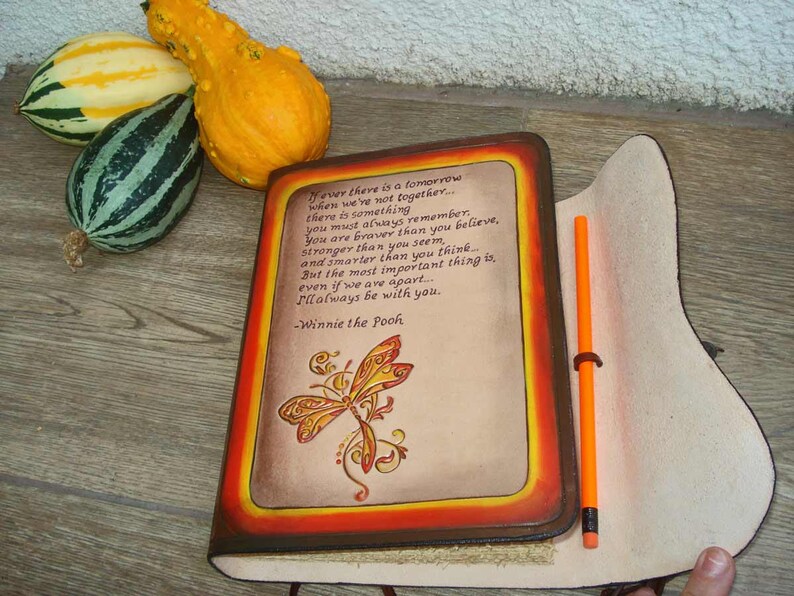 If ever there is a tomorrow
when we're not together...
there is something
you must always remember.
You are braver than you believe,
stronger than you seem,
and smarter than you think...
But the most important thing is,
even if we are apart...
I'll always be with you.
-Winnie the Pooh